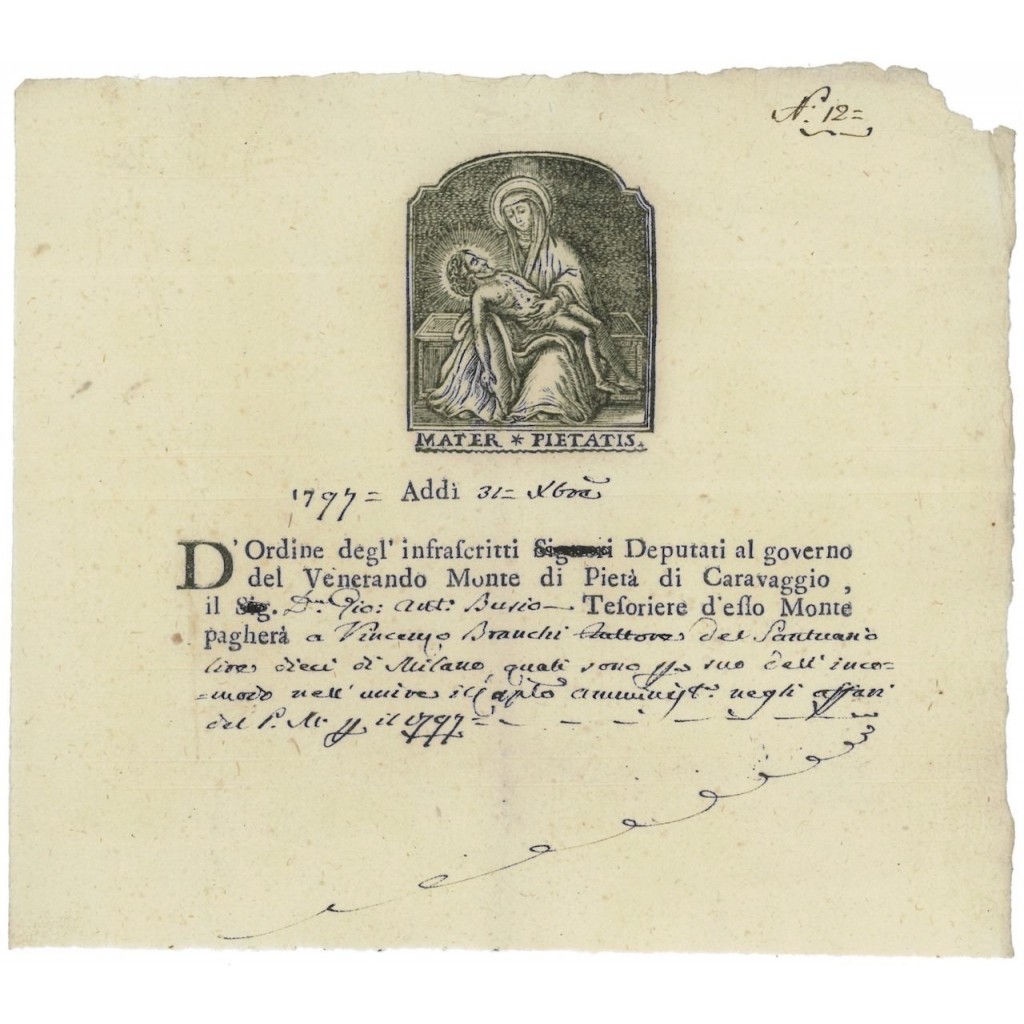 N.° 12=
MATER * PIETATIS.
1797= Addì 31= Xbre
D'Ordine degl' infraſcritti Signori Deputati al governo
del Venerando Monte di Pietà di Caravaggio,
il Sig. Dn. Gio: Ant.° Busio — Teſoriere d'eſſo Monte
pagherà a Vincenzo Branchi del Santuario
lire dieci di Milano, quali sono suo dell'inco=
=modo nell' amminist.e negli affari
del P. M. il 1797=